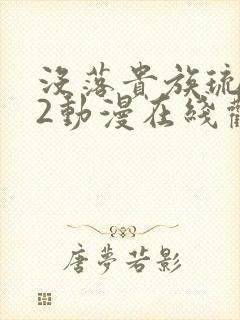 沒落貴族琉
2動漫在綫
唐夢若影